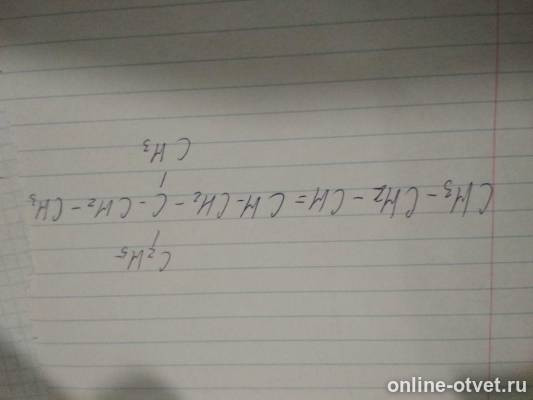 C₂H₅
|
CH₃ - CH₂ - CH = CH - CH₂ - C - CH₂ - CH₃
|
CH₃
online-otvet.ru